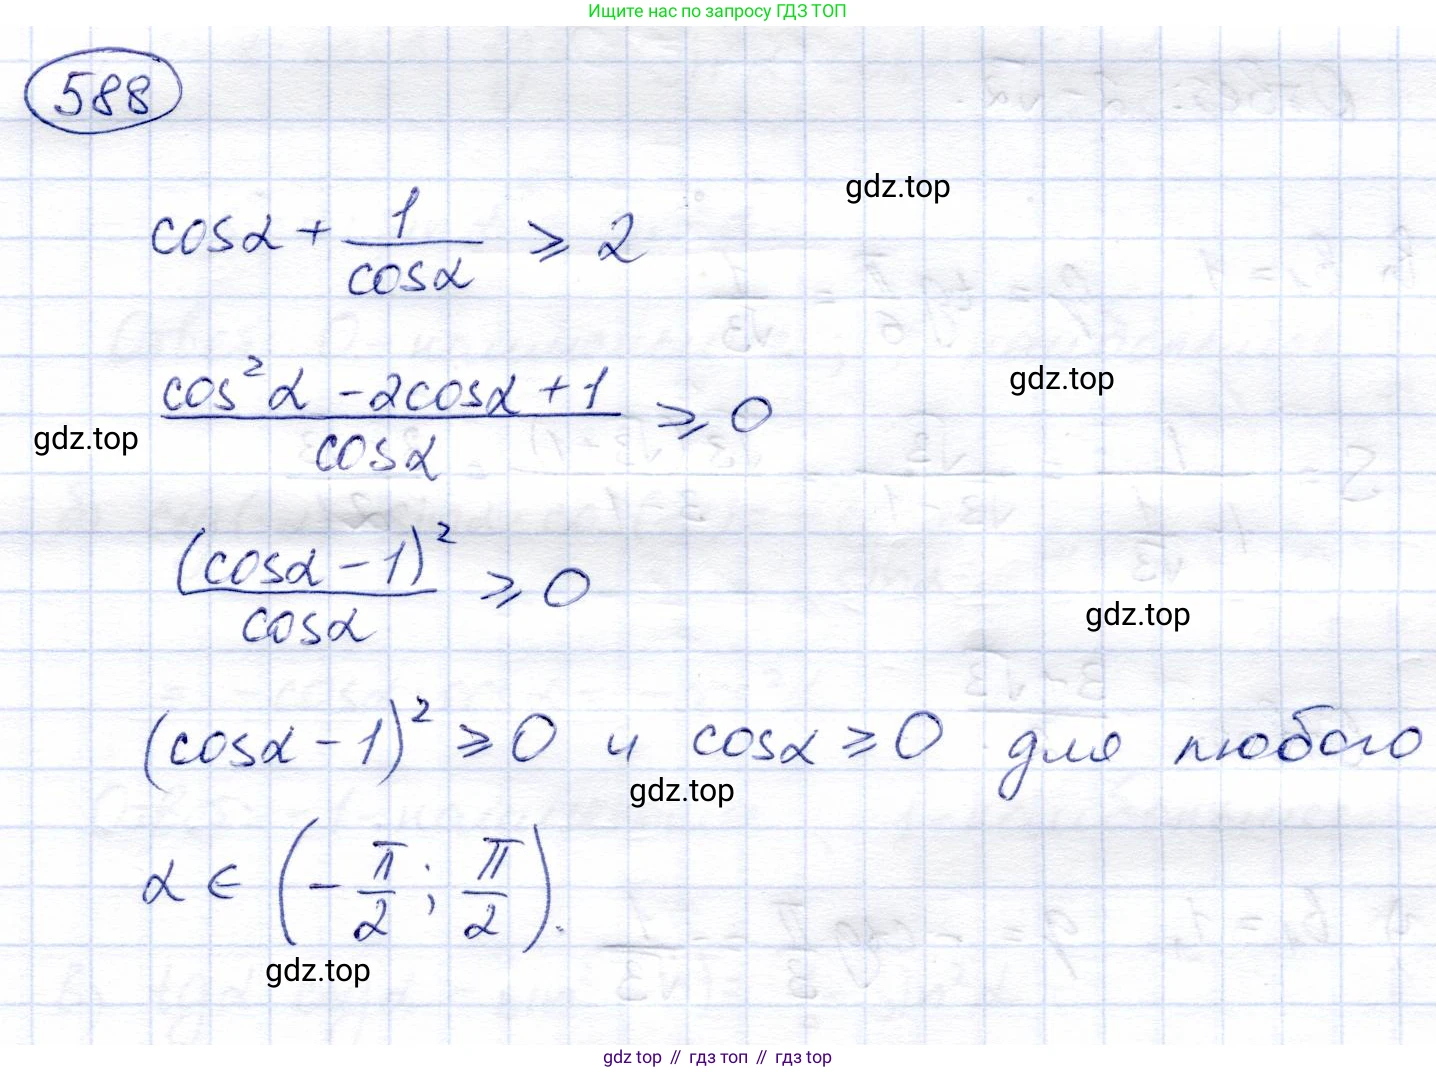 Ищите нас по запросу ГДЗ ТОП
588
gdz.top
cosα + 1/cosα ⩾ 2
gdz.top
(cos²α − 2cosα + 1)/cosα ⩾ 0
gdz.top
(cosα − 1)²/cosα ⩾ 0
gdz.top
(cosα − 1)² ⩾ 0 и cosα ⩾ 0 для любого
gdz.top
α ∈ (−π/2; π/2).
gdz.top
gdz top // гдз топ // gdz top